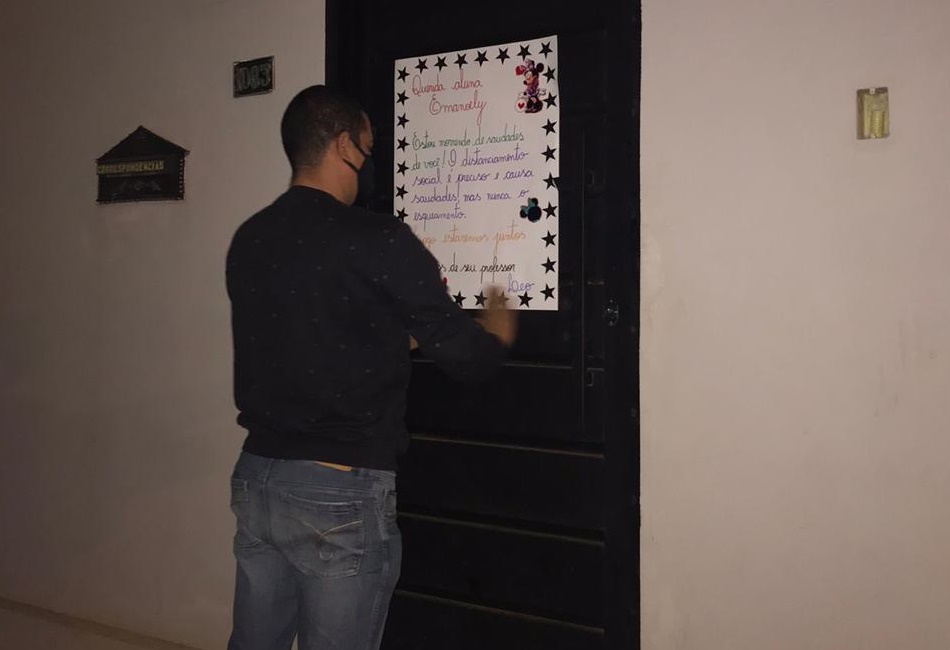 1083
CORRESPONDÊNCIAS
Querida aluna
Emanoely
Estou morrendo de saudades
de você! O distanciamento
social é preciso e causa
saudades! mas nunca o
esquecimento.
estaremos juntos
de seu professor
Leo